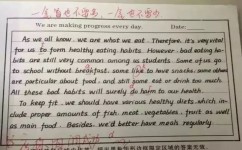 We are making progress every day. Date:
As we all know, we are what we eat. Therefore, it's very vital
for us to form healthy eating habits. However, bad eating ha-
bits are still very common among us students. Some of us go
to school without breakfast, some like to have snacks, some others
are particular about food, and still some eat or drink too much.
All these bad habits will surely do harm to our health.
To keep fit, we should have various healthy diets, which in-
clude proper amounts of fish, meat, vegetables, fruit as well
as main food. Besides, we'd better have meals regularly